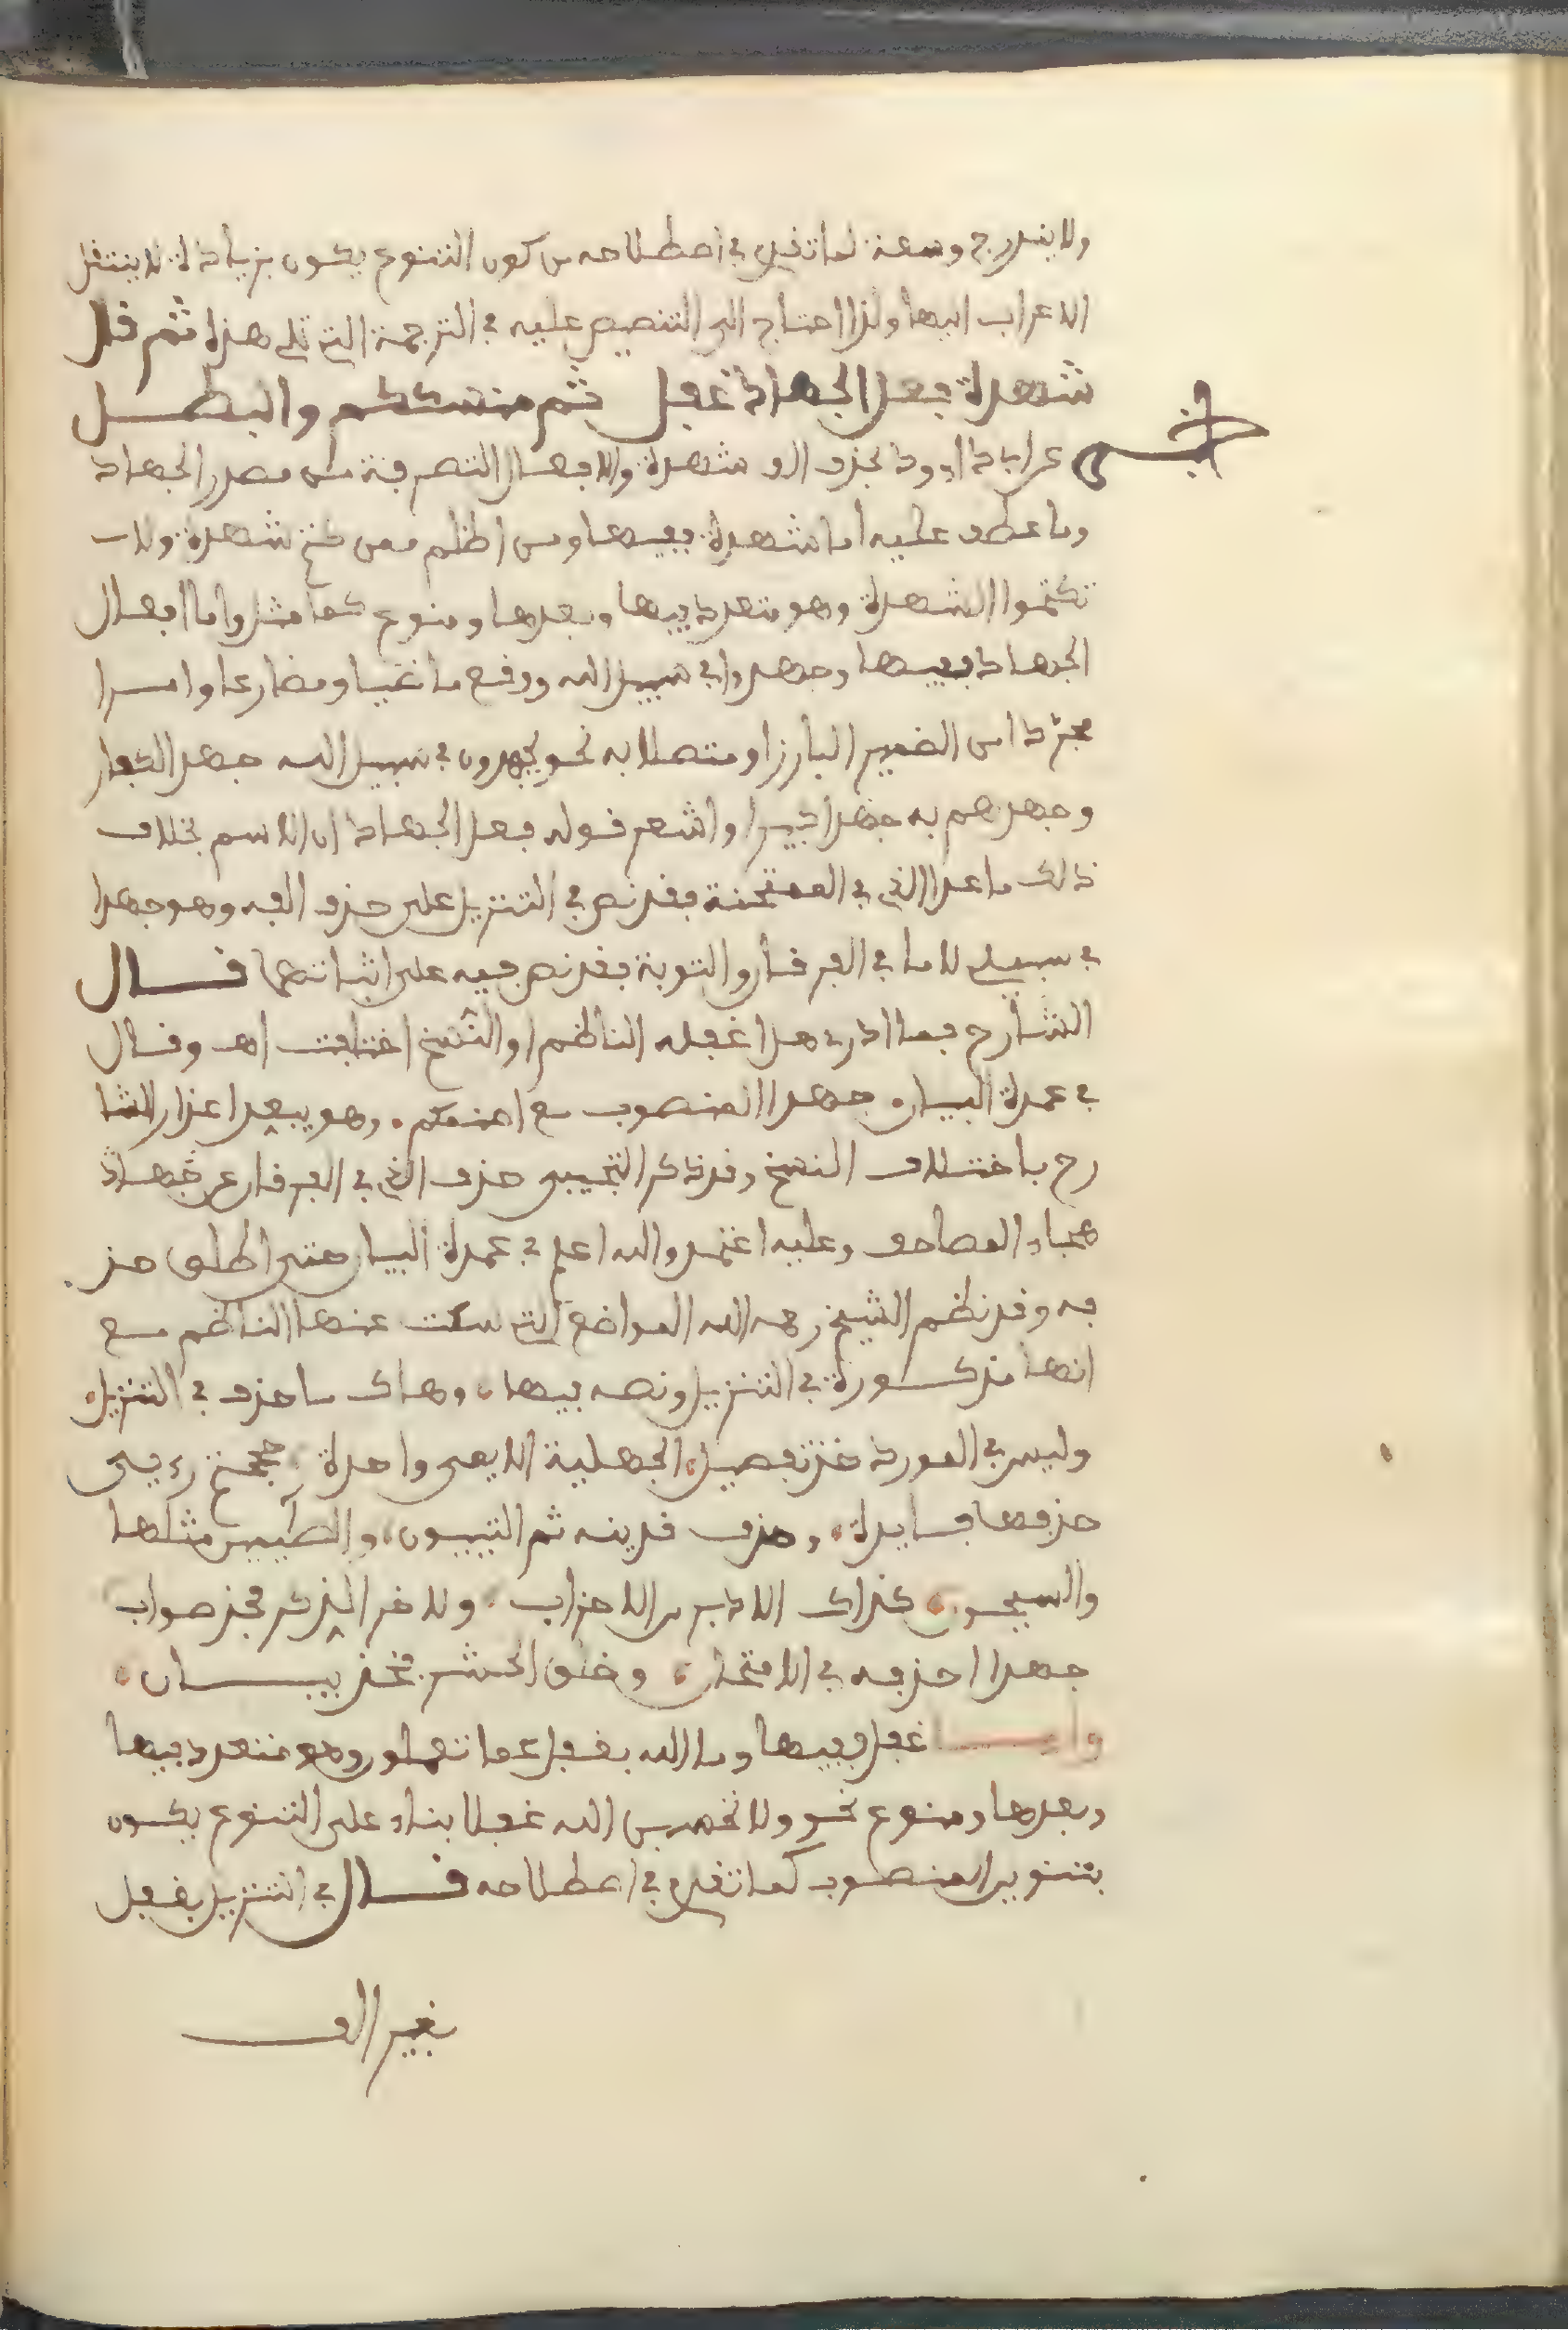 ولا يندرج وسعة لما تقدم في اصطلاحه من كون التنوع يكون بزيادة لا ينتقل
الاعراب اليها ولذا احتاج الى التنصيص عليه في الترجمة التي تلي هذا ثم قال
شهدة فعل الجهاد غفل ثم منسككم والبطل
عن ابي داوود بحذف الف شهدة والافعال المتصرفة من مصدر الجهاد
وما عطف عليه اما شهدة ففيها ومن اظلم ممن كتم شهدة ولا
تكتموا الشهدة وهو متعدد فيها وبعدها ومنوع كما مثل واما افعال
الجهاد ففيها وجهدوا في سبيل الله ووقع ماضيا ومضارعا وامرا
مجردا من الضمير البارز او متصلا به نحو يجهدون في سبيل الله جهد الكفار
وجهدهم به جهدا كبيرا واشعر قوله فعل الجهاد ان الاسم بخلاف
ذلك ما عدا الذي في الممتحنة فقد نص في التنزيل على حذف الفه وهو جهدا
في سبيلي لا ما في الفرقان والتوبة فقد نص فيه على اثباتهما قال
الشارح فما ادري هل اغفله الناظم او النسخ اختلفت اهـ وقال
في عمدة البيان جهدا المنصوب مع اضغثم وهو يبعد اعذار الشا
رح باختلاف النسخ وقد ذكر التجيبي حذف الذي في الفرقان عن بعض
هجاء المصاحف وعليه اعتمد والله اعلم في عمدة البيان حتى اطلق حذ
فه وقد نظم الشيخ رحمه الله المواضع التي سكت عنها الناظم مع
انها مذكورة في التنزيل ونصه فيها وهاك ما حذف في التنزيل
وليس في المورد خذ تفصيل الجهلية الايمى واحدة حججتم رءيى
حذفها فايدة وحذف قرينه ثم التيبون والطيبين مثلها
والسيحون كذاك الادبر من الاحزاب ولاخر الذكر فخذ صواب
جهدا احذفه في الامتحان وخلق الحشر فخذ بيان
واما غفل ففيها وما الله بغفل عما تعملون وهو متعدد فيها
وبعدها ومنوع نحو ولا تحسبن الله غفلا بناء على التنوع يكون
بتنوين المنصوب كما تقدم في اصطلاحه قال في التنزيل بغفل
بغير الف